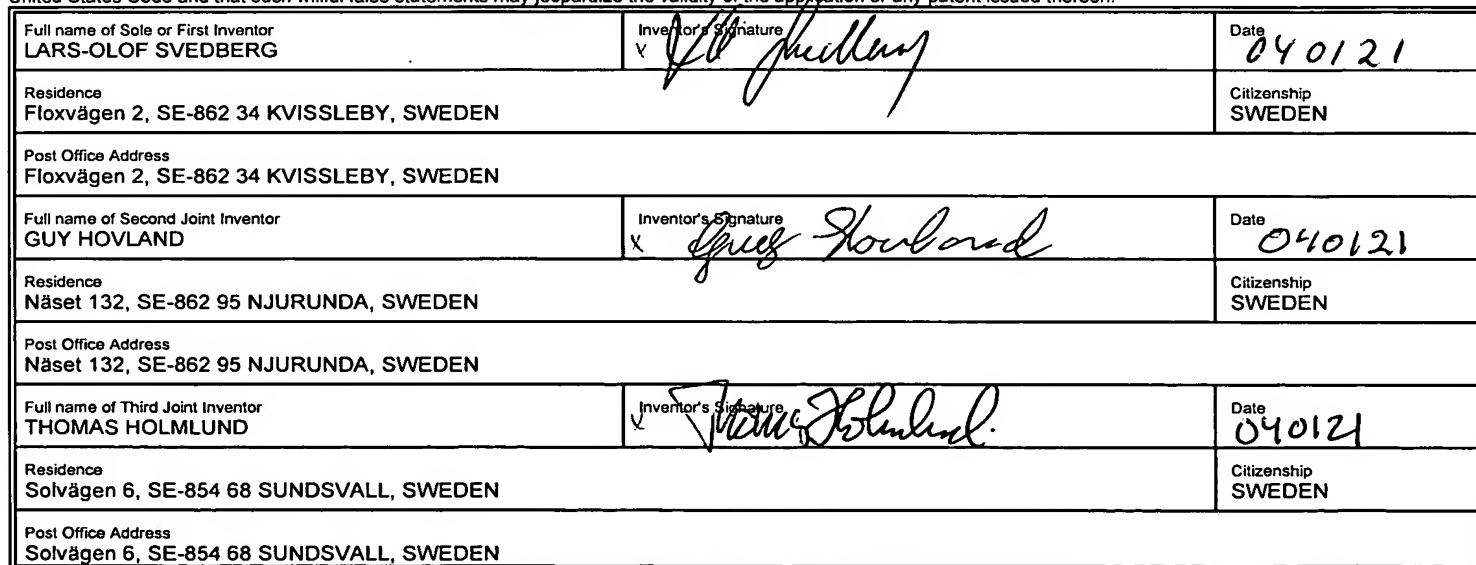 United States Code and that such willful false statements may jeopardize the validity of the application or any patent issued thereon.
Full name of Sole or First Inventor
LARS-OLOF SVEDBERG
Inventor's Signature
X
Date
040121
Residence
Floxvägen 2, SE-862 34 KVISSLEBY, SWEDEN
Citizenship
SWEDEN
Post Office Address
Floxvägen 2, SE-862 34 KVISSLEBY, SWEDEN
Full name of Second Joint Inventor
GUY HOVLAND
Inventor's Signature
X Guy Hovland
Date
040121
Residence
Näset 132, SE-862 95 NJURUNDA, SWEDEN
Citizenship
SWEDEN
Post Office Address
Näset 132, SE-862 95 NJURUNDA, SWEDEN
Full name of Third Joint Inventor
THOMAS HOLMLUND
Inventor's Signature
X Thomas Holmlund
Date
040121
Residence
Solvägen 6, SE-854 68 SUNDSVALL, SWEDEN
Citizenship
SWEDEN
Post Office Address
Solvägen 6, SE-854 68 SUNDSVALL, SWEDEN